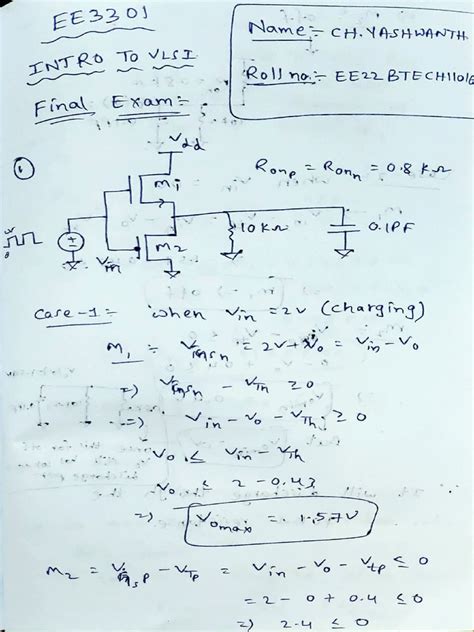 EE3301
INTRO TO VLSI
Final Exam:-
Name:- CH.YASHWANTH
Roll no:- EE22BTECH11016
①
Vdd
M1
M2
Vin
2V
0
Ronp = Ronn = 0.8 KΩ
10KΩ
0.1PF
case-1:- when Vin = 2V (charging)
M1 :- VGSn = 2V - Vo = Vin - Vo
=) VGSn - VTn ≥ 0
=) Vin - Vo - VTh ≥ 0
Vo ≤ Vin - VTh
Vo ≤ 2 - 0.43
=) Vomax = 1.57V
M2 = VGSP - VTP = Vin - Vo - Vtp ≤ 0
= 2 - 0 + 0.4 ≤ 0
=) 2.4 ≤ 0